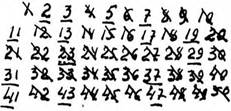 1 2 3 4 5 6 7 8 9 10
11 12 13 14 15 16 17 18 19 20
21 22 23 24 25 26 27 28 29 30
31 32 33 34 35 36 37 38 39 40
41 42 43 44 45 46 47 48 49 50